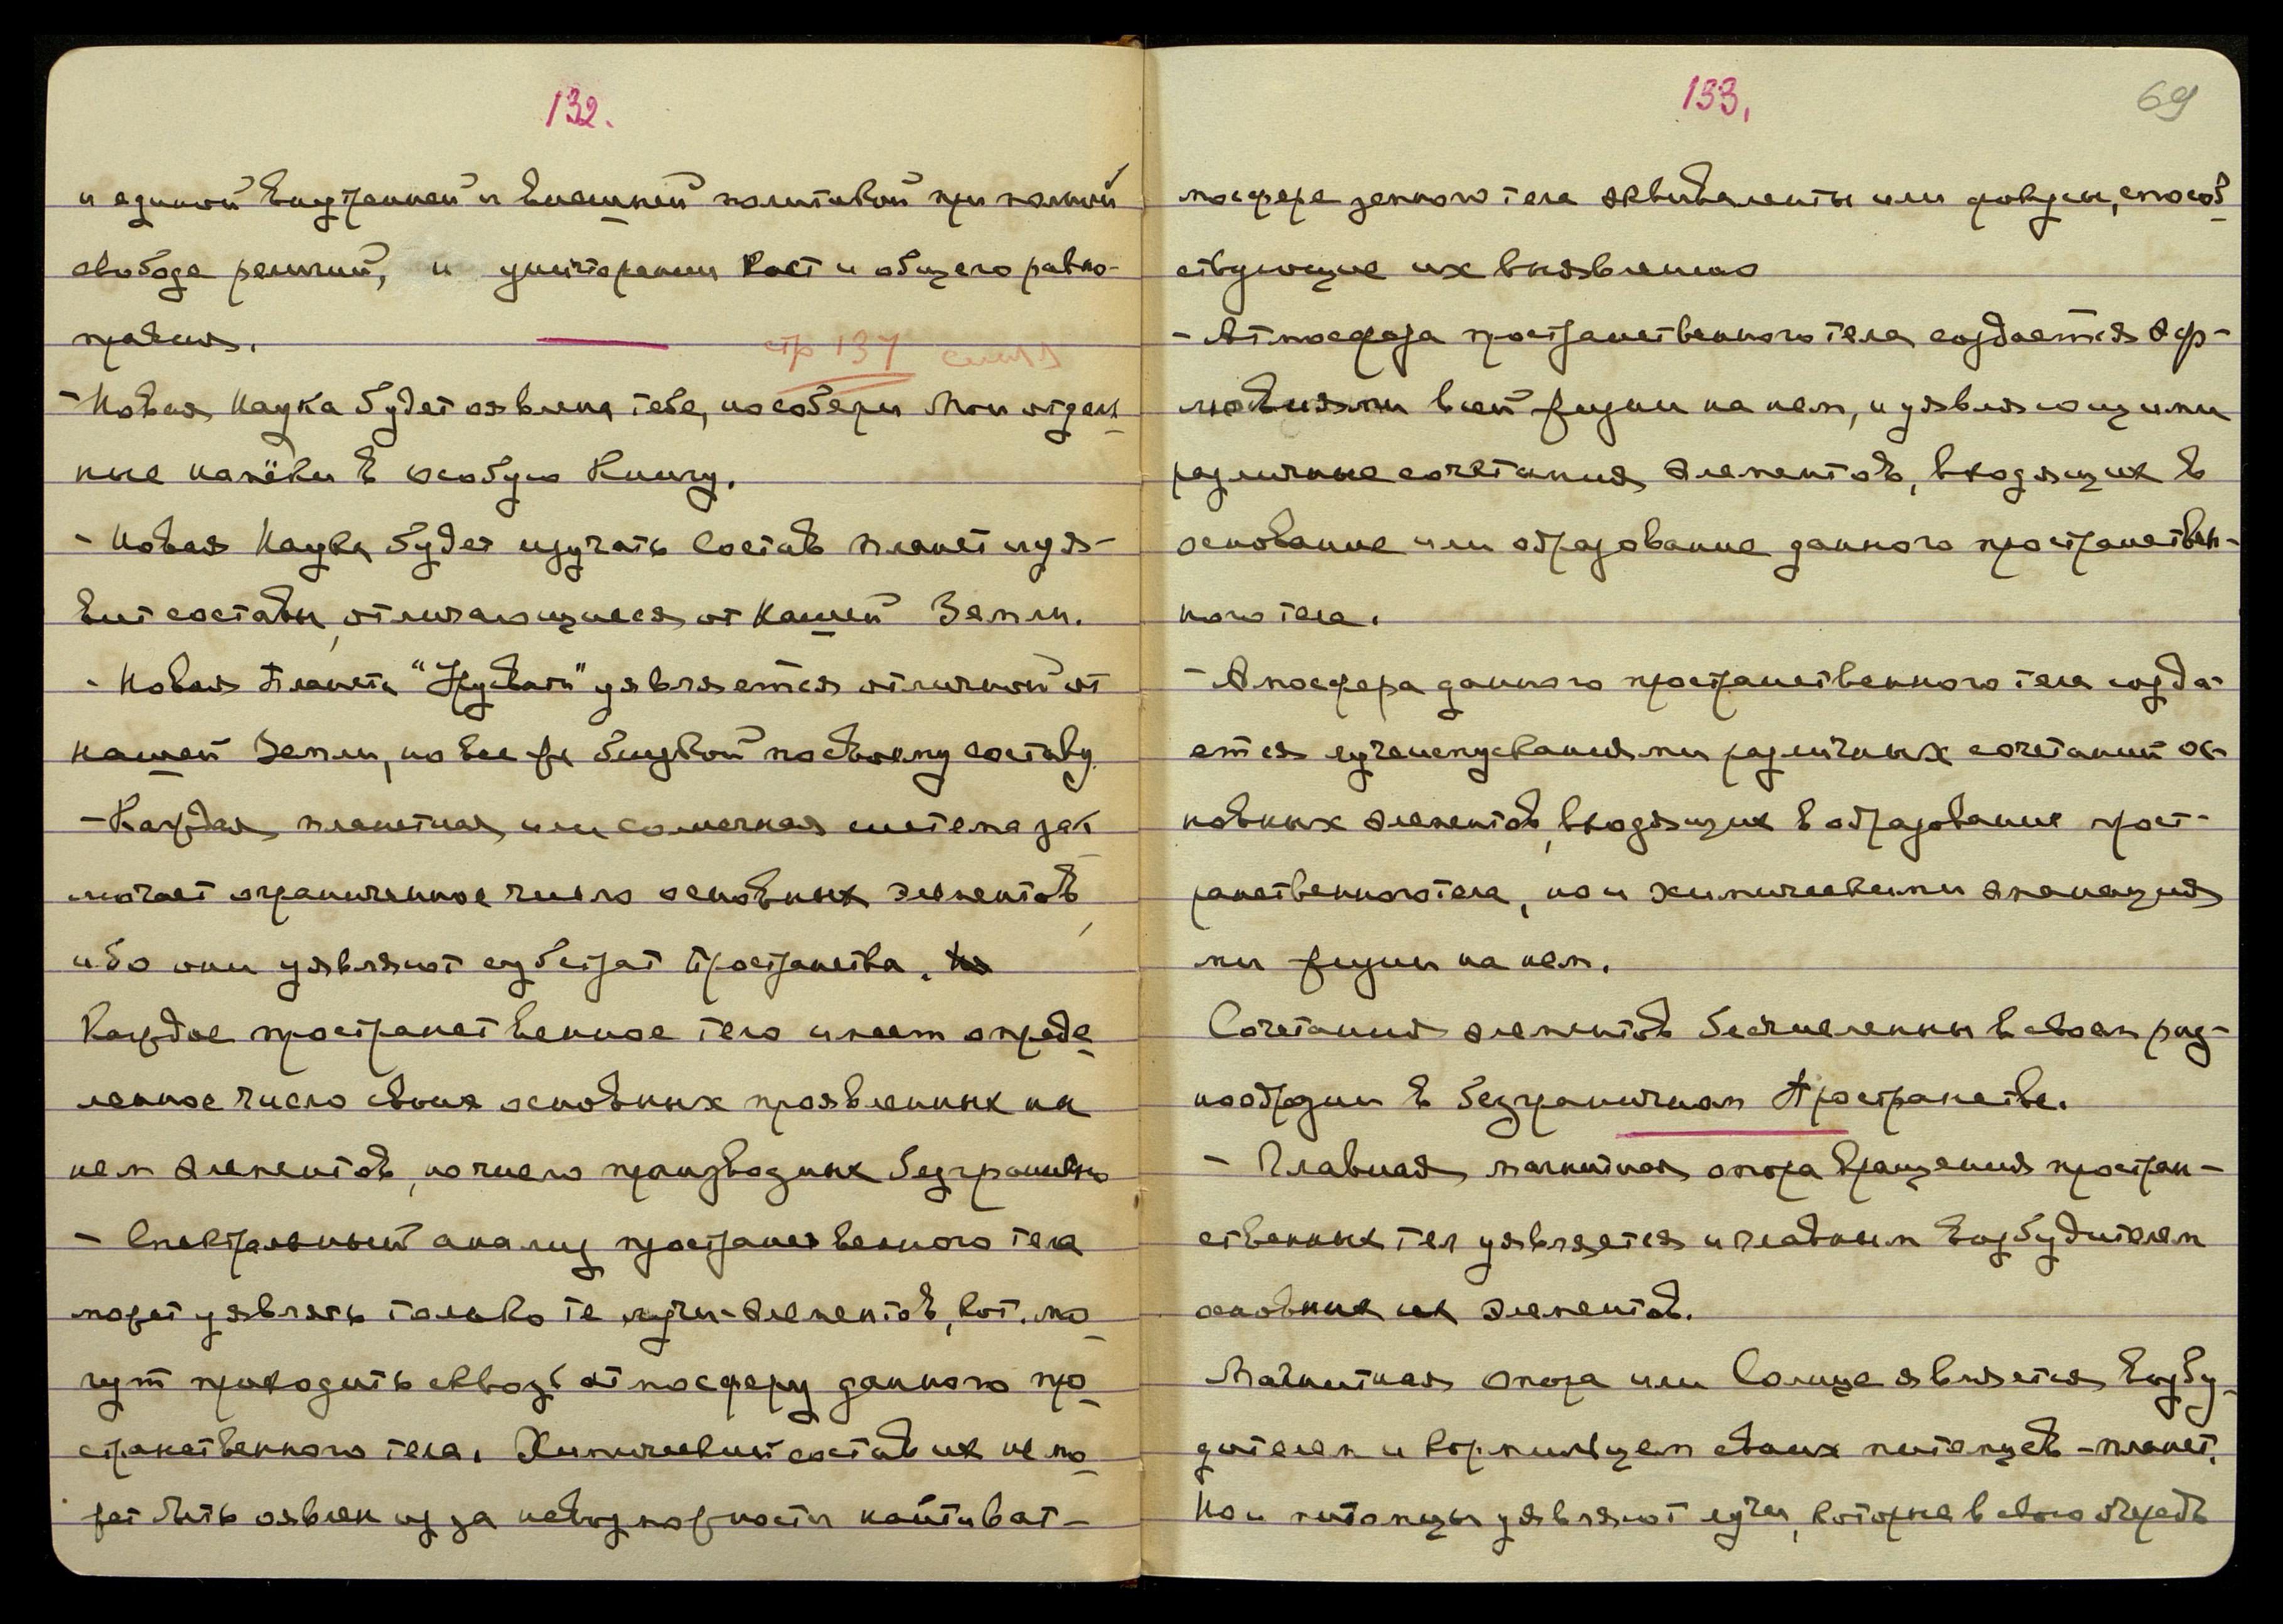 132.
и единой внутренней и внешней политикой при полной
свободе религий, и уничтожении каст и общего равно-
правия.
стр 137 снизу
- Новая Наука будет оявлена тебе, но собери Мои отдель
ные намёки в особую Книгу.
- Новая Наука будет изучать состав планет и уя-
вит составы, отличающиеся от нашей Земли.
- Новая Планета "Урусвати" уявляется отличной от
нашей Земли, но все же близкой по своему составу.
- Каждая планетная или солнечная система зак
лючает ограниченное число основных элементов,
ибо они уявляют субстрат Пространства.
Каждое пространственное тело имеет опреде
ленное число своих основных проявленных на
нем элементов, но число производных безгранично
- Спектральный анализ пространственного тела
может уявлять только те лучи-элементов, кот. мо
гут проходить сквозь атмосферу данного про
странственного тела. Химический состав их не мо
жет быть оявлен из за невозможности найти в ат-
133.
69
мосфере земного тела эквиваленты или фокусы, способ
ствующие их выявлению
- Атмосфера пространственного тела создается эф-
лювиями всей жизни на нем, и уявляющими
различные сочетания элементов, входящих в
основание или образование данного пространствен-
ного тела.
- Атмосфера данного пространственного тела созда-
ется лучеиспусканиями различных сочетаний ос-
новных элементов, входящих в образование прост-
ранственного тела, но и химическими эманация
ми жизни на нем.
Сочетания элементов бесчисленны в своем раз-
нообразии в безграничном Пространстве.
- Главная магнитная опора вращения простран-
ственных тел уявляется и главным возбудителем
основных их элементов.
Магнитная опора или Солнце является возбу
дителем и кормильцем своих питомцев - планет.
Но и питомцы уявляют лучи, которые в свою очередь